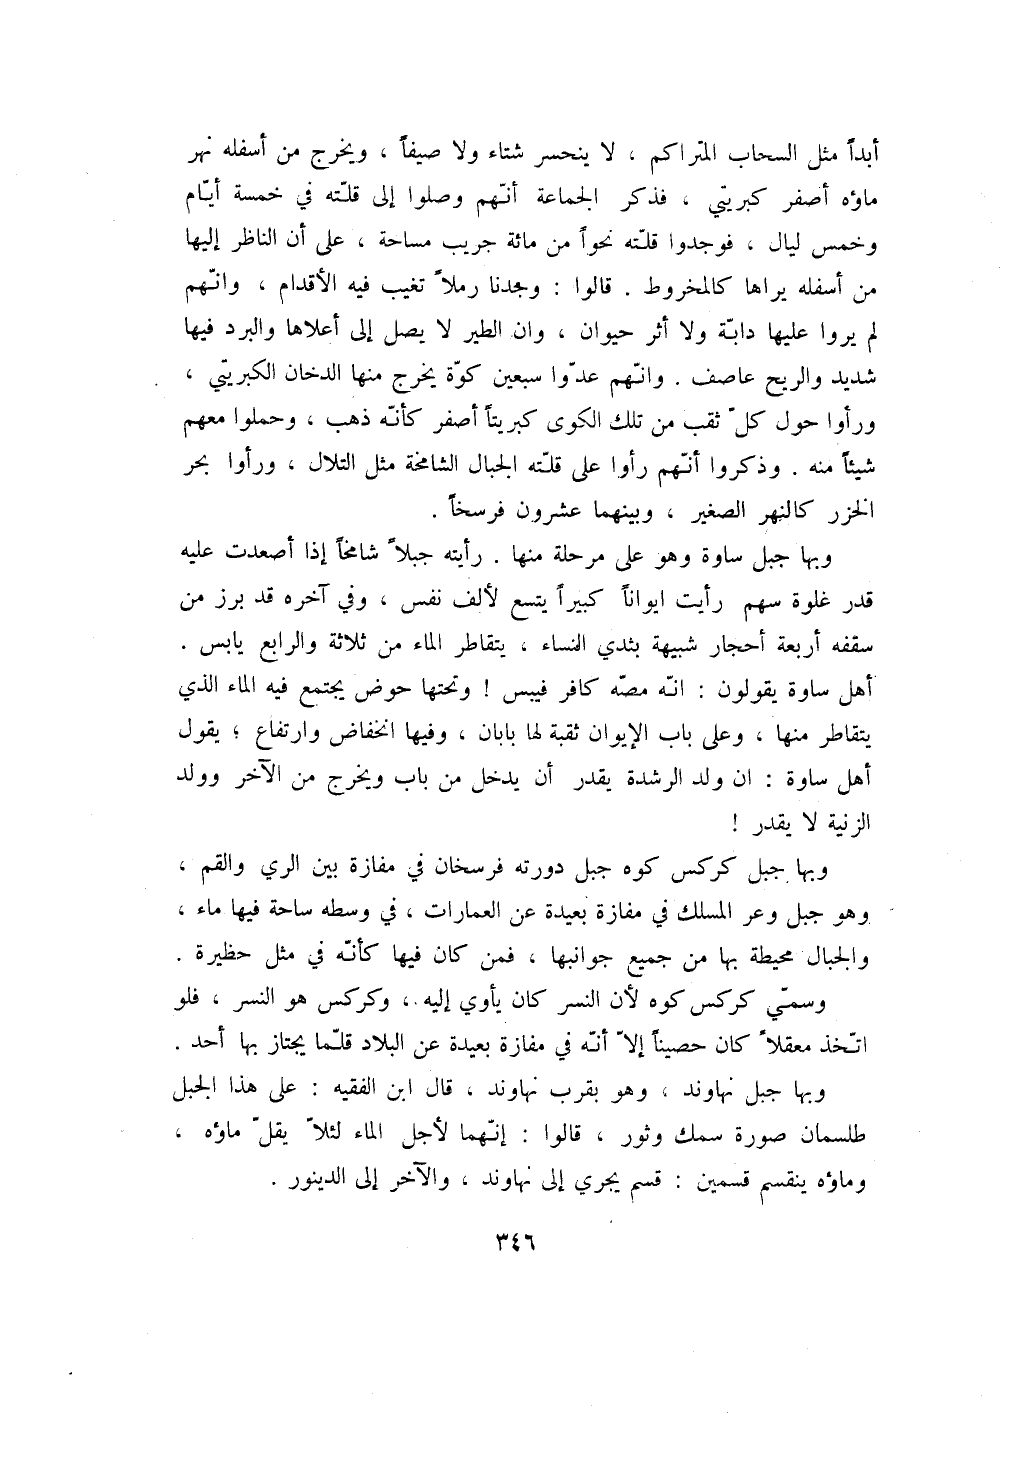 أبداً مثل السحاب المتراكم ، لا ينحسر شتاء ولا صيفاً ، ويخرج من أسفله نهر
ماؤه أصفر كبريتي ، فذكر الجماعة أنّهم وصلوا إلى قلّته في خمسة أيّام
وخمس ليال ، فوجدوا قلّته نحواً من مائة جريب مساحة ، على أن الناظر إليها
من أسفله يراها كالمخروط . قالوا : وجدنا رملاً تغيب فيه الأقدام ، وانّهم
لم يروا عليها دابّة ولا أثر حيوان ، وان الطير لا يصل إلى أعلاها والبرد فيها
شديد والريح عاصف . وانّهم عدّوا سبعين كوّة يخرج منها الدخان الكبريتي ،
ورأوا حول كلّ ثقب من تلك الكوى كبريتاً أصفر كأنّه ذهب ، وحملوا معهم
شيئاً منه . وذكروا أنّهم رأوا على قلّته الجبال الشامخة مثل التلال ، ورأوا بحر
الخزر كالنهر الصغير ، وبينهما عشرون فرسخاً .
وبها جبل ساوة وهو على مرحلة منها . رأيته جبلاً شامخاً إذا أصعدت عليه
قدر غلوة سهم رأيت ايواناً كبيراً يتسع لألف نفس ، وفي آخره قد برز من
سقفه أربعة أحجار شبيهة بثدي النساء ، يتقاطر الماء من ثلاثة والرابع يابس .
أهل ساوة يقولون : انّه مصّه كافر فيبس ! وتحتها حوض يجتمع فيه الماء الذي
يتقاطر منها ، وعلى باب الإيوان ثقبة لها بابان ، وفيها انخفاض وارتفاع ؛ يقول
أهل ساوة : ان ولد الرشدة يقدر أن يدخل من باب ويخرج من الآخر وولد
الزنية لا يقدر !
وبها جبل كركس كوه جبل دورته فرسخان في مفازة بين الري والقم ،
وهو جبل وعر المسلك في مفازة بعيدة عن العمارات ، في وسطه ساحة فيها ماء ،
والجبال محيطة بها من جميع جوانبها ، فمن كان فيها كأنّه في مثل حظيرة .
وسمّي كركس كوه لأن النسر كان يأوي إليه ، وكركس هو النسر ، فلو
اتّخذ معقلاً كان حصيناً إلاّ أنّه في مفازة بعيدة عن البلاد قلّما يجتاز بها أحد .
وبها جبل نهاوند ، وهو بقرب نهاوند ، قال ابن الفقيه : على هذا الجبل
طلسمان صورة سمك وثور ، قالوا : إنّهما لأجل الماء لئلاّ يقلّ ماؤه ،
وماؤه ينقسم قسمين : قسم يجري إلى نهاوند ، والآخر إلى الدينور .
٣٤٦